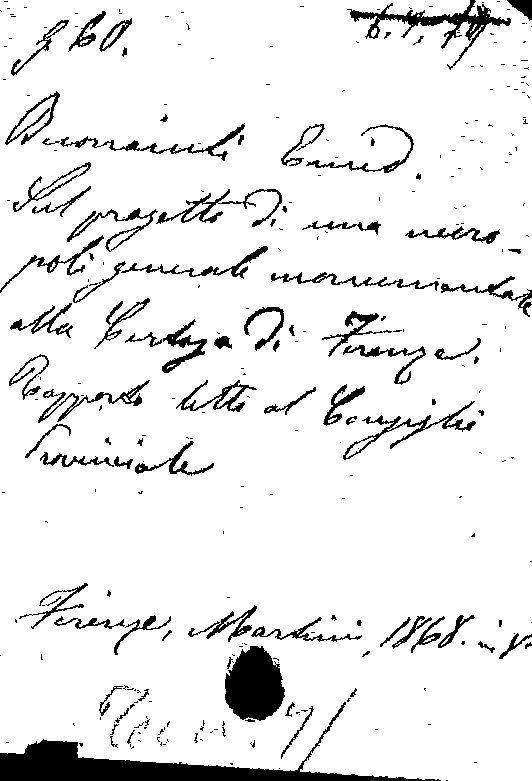 6. 7. 79
Buonaiuti Enrico.
Sul progetto di una necro-
poli generale monumentale
alla Certosa di Firenze.
Rapporto letto al Consiglio
Provinciale
Firenze, Martini, 1868. in 8